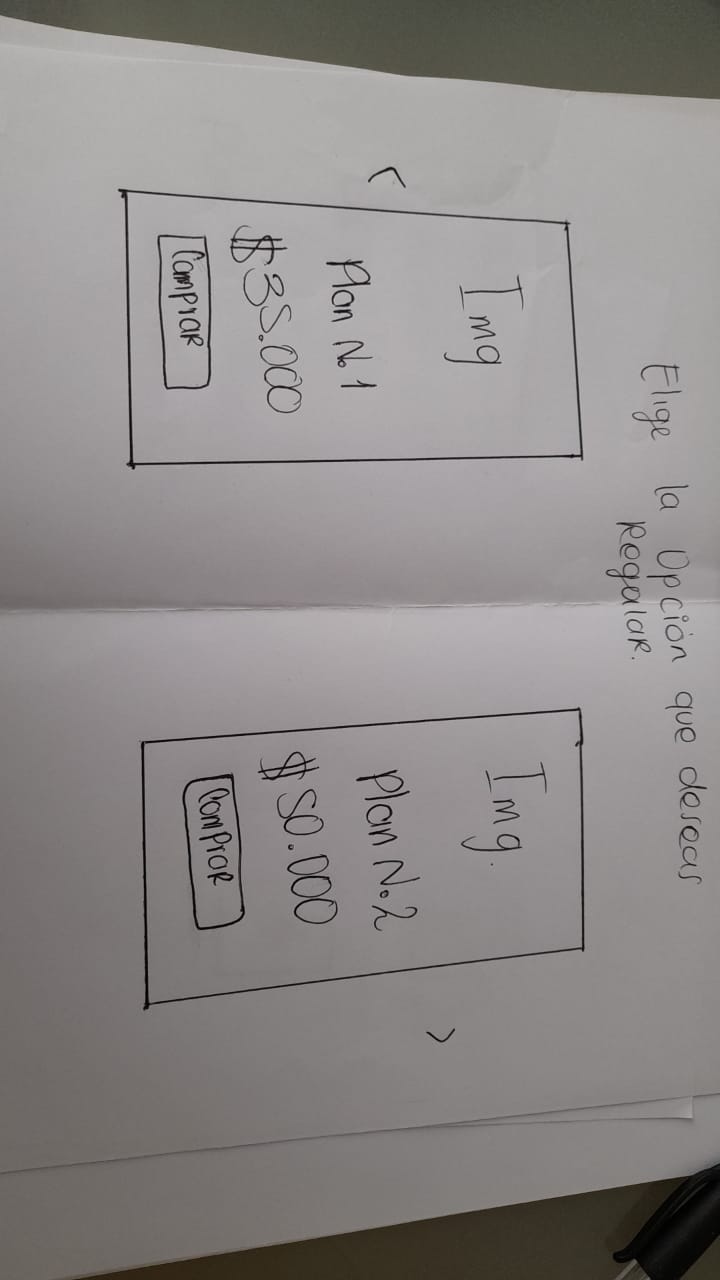 Elige la Opción que deseas
Regalar.
<
Img
Plan No.1
$35.000
Comprar
Img.
Plan No.2
$50.000
Comprar
>